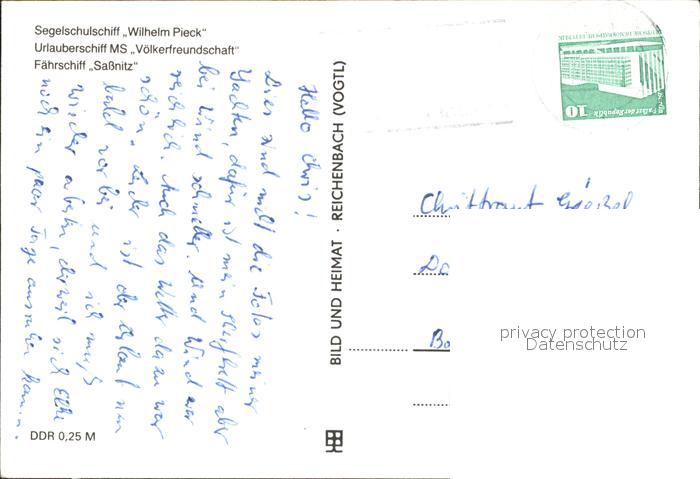 Segelschulschiff „Wilhelm Pieck"
Urlauberschiff MS „Völkerfreundschaft"
Fährschiff „Saßnitz"
Hallo Chris!
Dies sind nicht die Fotos meiner
Yachten, dafür ist mein Surfbrett aber
bei Wind schneller. Und Wind war
reichlich. Auch das Wetter dazu war
schön. Leider ist der Urlaub nun
bald vorbei und ich muß
wieder arbeiten, derweil sich Elke
noch ein paar Tage ausruhen kann.
DDR 0,25 M
BILD UND HEIMAT · REICHENBACH (VOGTL)
10
Palast der Republik
DEUTSCHE DEMOKRATISCHE REPUBLIK
Da
Bo
privacy protection
Datenschutz